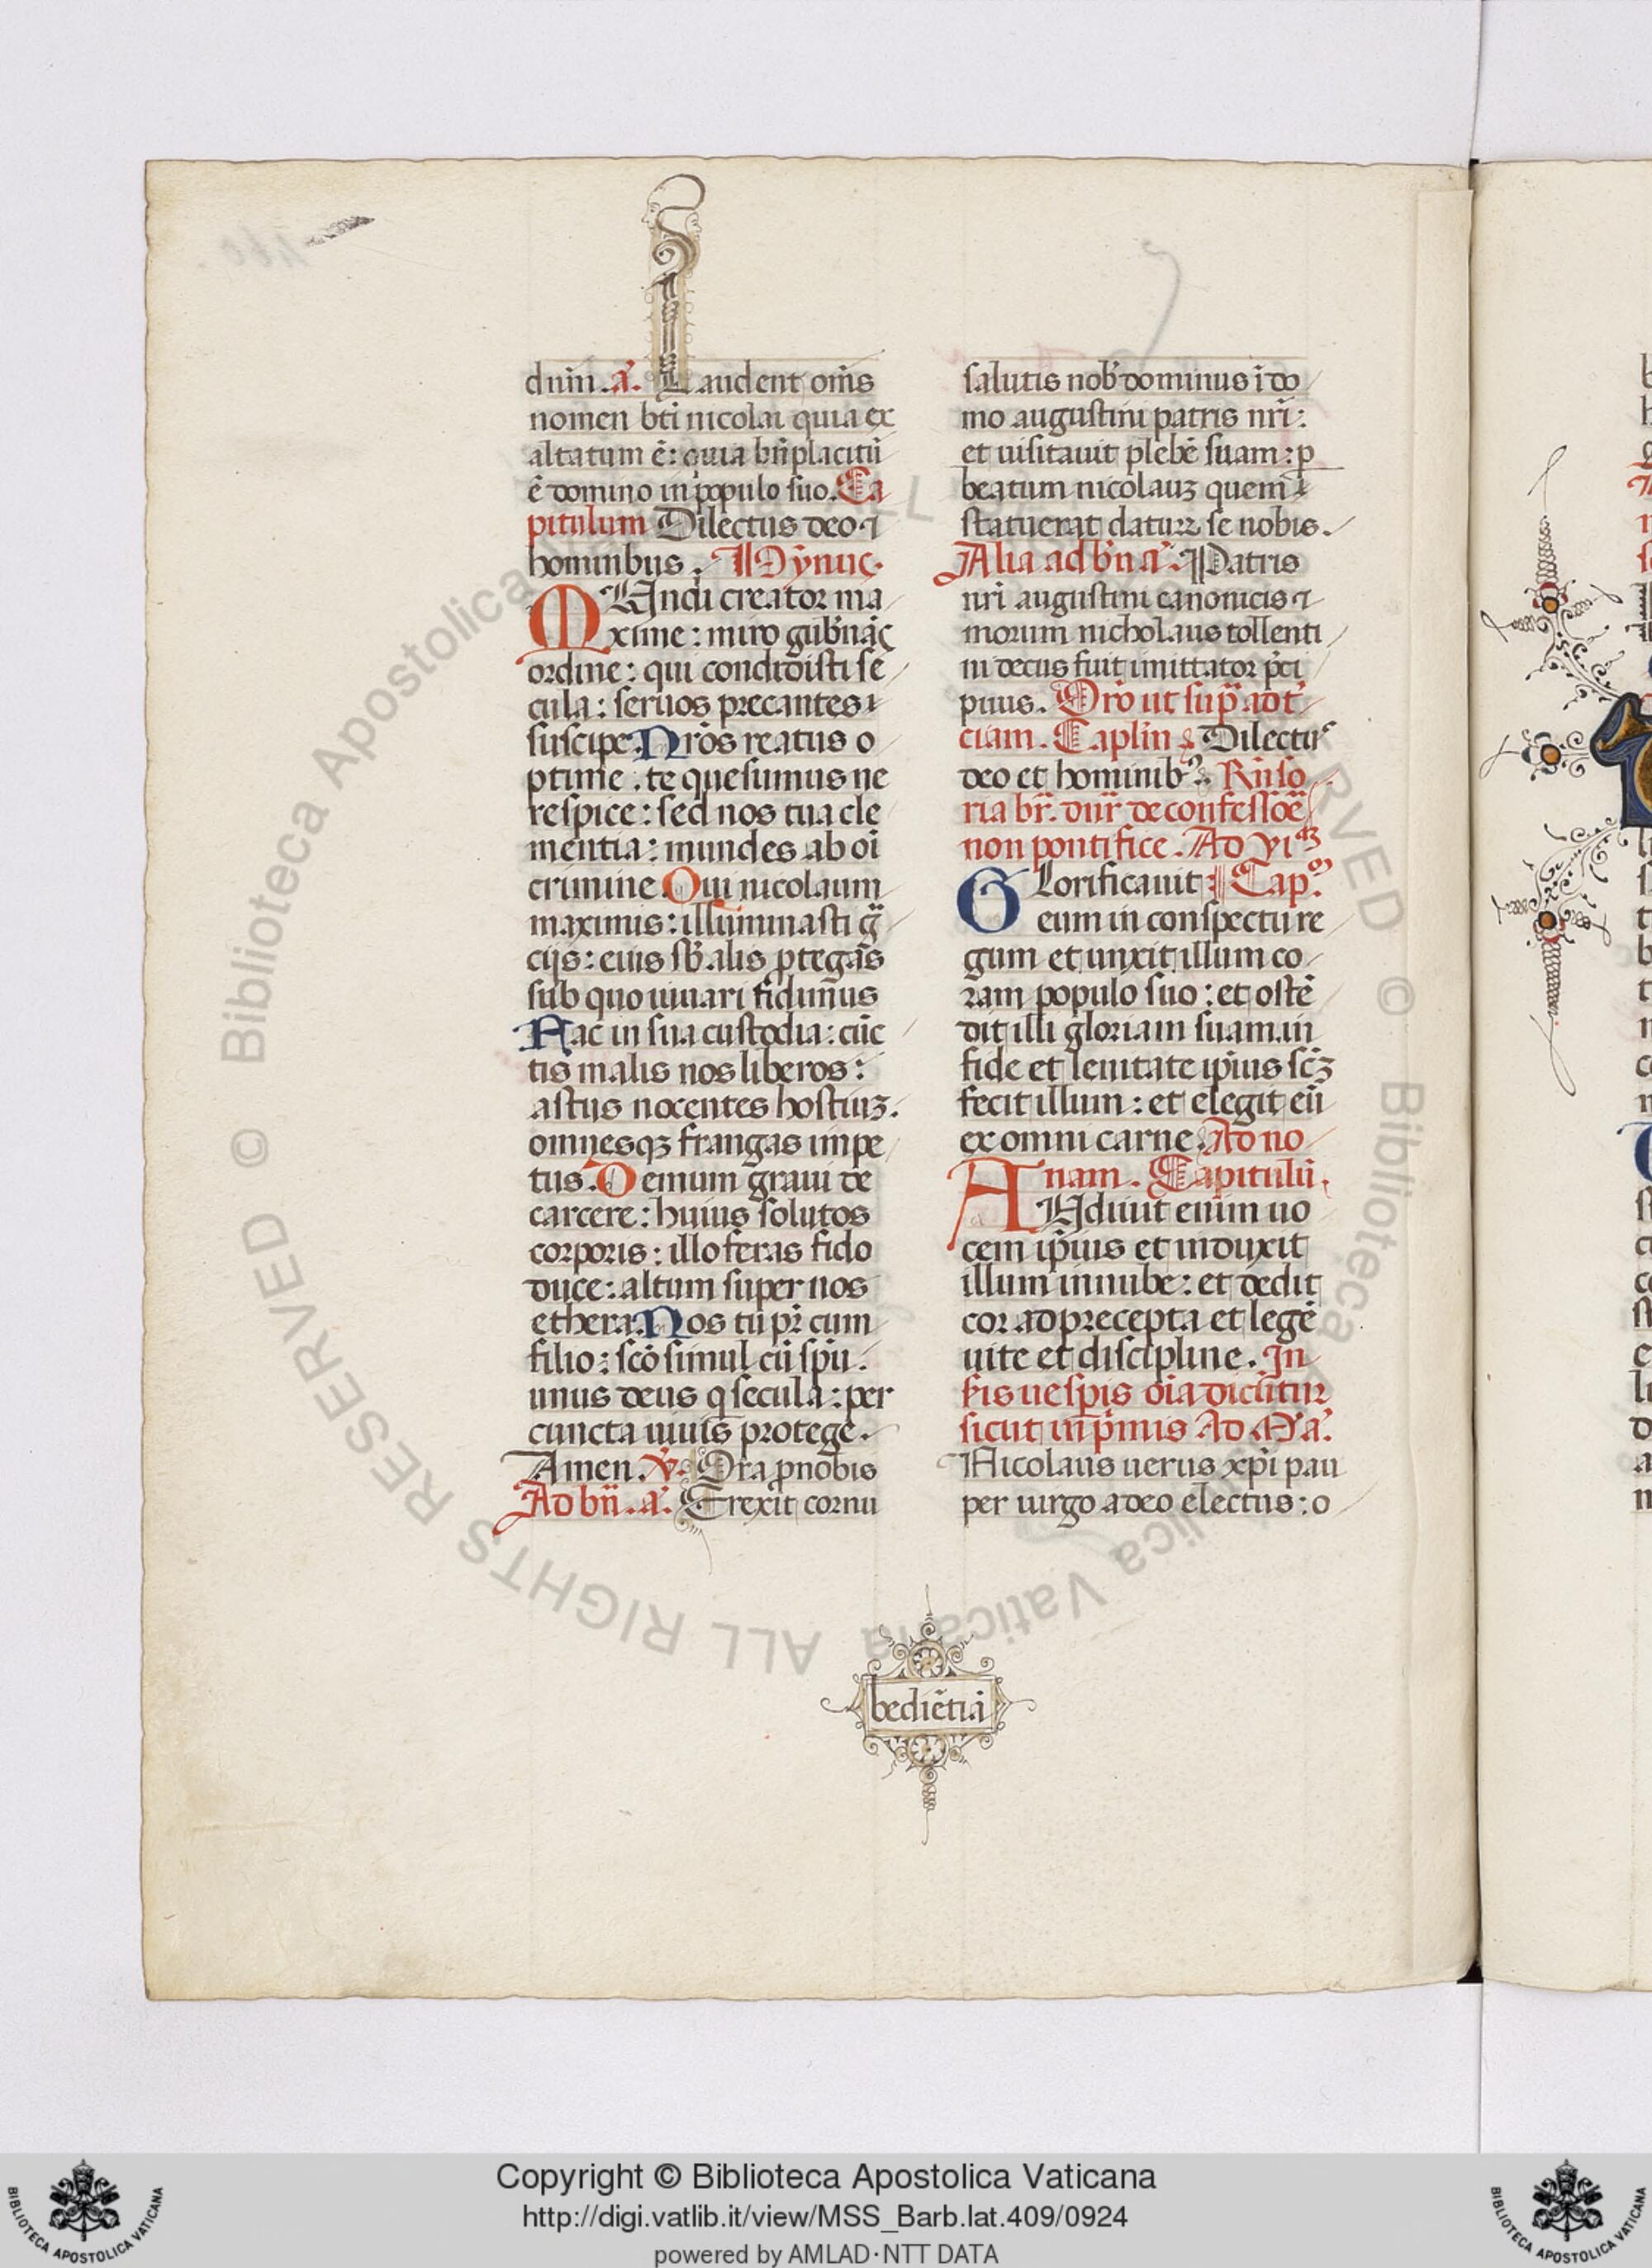 dnm̄. a̓. Laudent om̄s
nomen bt̄i nicolai quia ex
altatum ē: quia bn̄placitū
ē domino in populo suo. Ca
pitulum Dilectus deo ⁊
hominibus. Hȳnus.
MUndi creator ma
xime: miro gub̓nās
ordine: qui condidisti se
cula: seruos precantes
suscipe. Nr̄os reatus o
ptime. te quesumus ne
respice: sed nos tua cle
mentia: mundes ab oī
crimine. Qui nicolaum
maximis: illuminasti gr̄a
cijs: eius sb̓ alis ꝓtegas
sub quo iuuari fidim̄us
Hac in sua custodia: cūc
tis malis nos liberos:
astus nocentes hostiuꝫ.
omnesqꝫ frangas impe
tus. Demum graui de
carcere: huius solutos
corporis: illo feras fido
duce: altum super nos
ethera. Nos tu pr̄ cum
filio: scō simul cū sp̄u.
unus deus q secula: per
cuncta uiuis protege.
Amen. ℣. Ora ꝓ nobis
Ad bn̄. a̓. Erexit cornu
salutis nob̓ dominus ī do
mo augustini patris nr̄i:
et uisitauit plebē suam: ꝑ
beatum nicolauꝫ quem
statuerat daturꝫ se nobis.
Alia ad bn̄ a̓. Patris
nr̄i augustini canonicis ⁊
morum nicholaus tollenti
ni decus fuit imittator p̄ci
puus. Orō ut sup̄ ad t̓
ciam. Caplm̄. Dilectuˢ
deo et hominibꝰ. Rn̄so
ria br̄. dnr̄ de confessōe
non pontifice. Ad viᵃꝫ
Glorificauit Cap.ᵐ
eum in conspectu re
gum et unxit illum co
ram populo suo: et ostē
dit illi gloriam suam. in
fide et lenitate ip̄ius scꝫ
fecit illum: et elegit eū
ex omni carne. Ad no
nam. Capitulū.
AUdiuit enim uo
cem ip̄ius et induxit
illum in nube: et dedit
cor ad precepta et legē
uite et discipline. In
sc̄is uesp̄is oīa dicūtur
sicut in p̄mis Ad M̓ a̓.
Nicolaus uerus xp̄i pau
per uirgo a deo electus: o
bediētiā
Copyright © Biblioteca Apostolica Vaticana
http://digi.vatlib.it/view/MSS_Barb.lat.409/0924
powered by AMLAD·NTT DATA
BIBLIOTECA APOSTOLICA VATICANA
BIBLIOTECA APOSTOLICA VATICANA
© Biblioteca Apostolica Vaticana ALL RIGHTS RESERVED